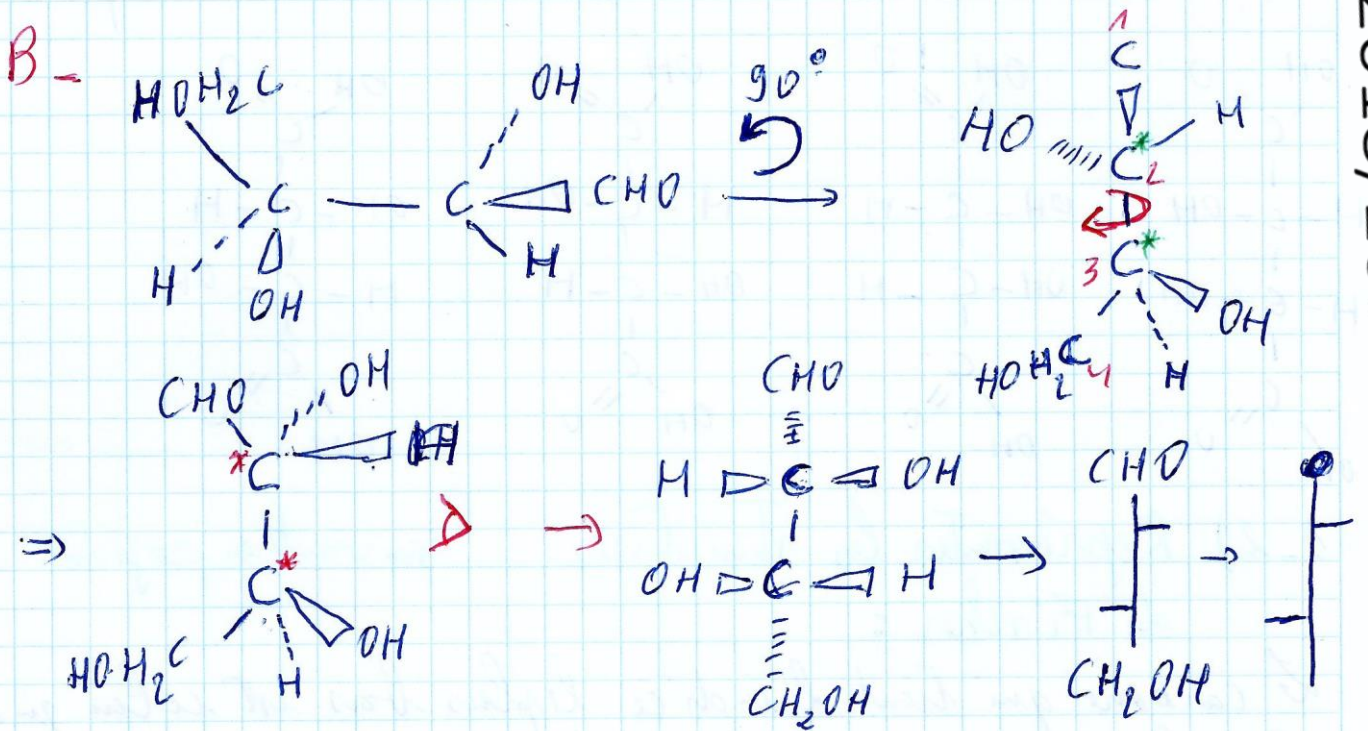 B-
HOH2C
OH
90°
C
C
CHO
H
H
OH
1
C
HO
C*
2
H
3
C*
OH
HOH2C
4
H
CHO
OH
*C
H
C*
HOH2C
H
OH
⇒
CHO
H C OH
OH C H
CH2OH
CHO
CH2OH